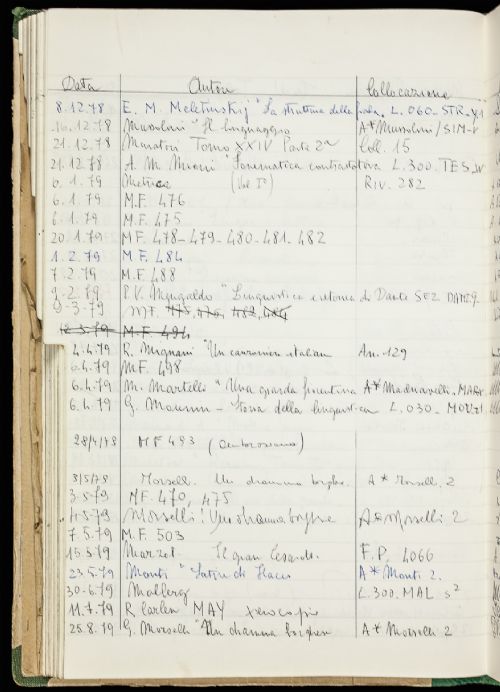 Data Autori Collocazione
8.12.78 E. M. Meletinskij "La struttura della fiaba. L. 060 STR.
16.12.78 Mussolini "Il linguaggio A* Mussolini/SIM-
21.12.78 Muratori Tomo XXIV Parte 2ª Coll. 15
21.12.78 A. M. Mioni "Fonematica contrastativa L. 300. TES
6.1.79 Metrica (Vol I°) RIV. 282
6.1.79 M.F. 476
6.1.79 M.F. 475
20.1.79 MF. 478-479-480-481-482
1.2.79 M.F. 484
7.2.79 M.F. 488
9.2.79 P.V. Mengaldo "Linguistica e retorica di Dante SEZ DANT
9-3-79 MF.
12.3.79 M.F. 494
4.4.79 R. Mignani "Un canzoniere italiano An. 129
6.4.79 MF. 498
6.4.79 M. Martelli "Una giarda fiorentina A* Machiavelli. MAR
6.4.79 G. Mounin - Storia della linguistica L. 030-
28/4/78 MF 493 (Ambrosiano)
3/5/79 Morselli. Un dramma borghe. A* Morsell. 2
3.5.79 MF. 470, 475
4.5.79 Morselli: Un dramma borghe A* Morselli 2
7.5.79 M.F. 503
15.5.79 Il gran F.P. 4066
23.5.79 Monti " A* Monti 2.
30-6.79 Malberg L. 300. MAL s²
11.7.79 R Carlen MAY xerocopie
25.8.79 G. Morselli "Un dramma borghese A* Morselli 2